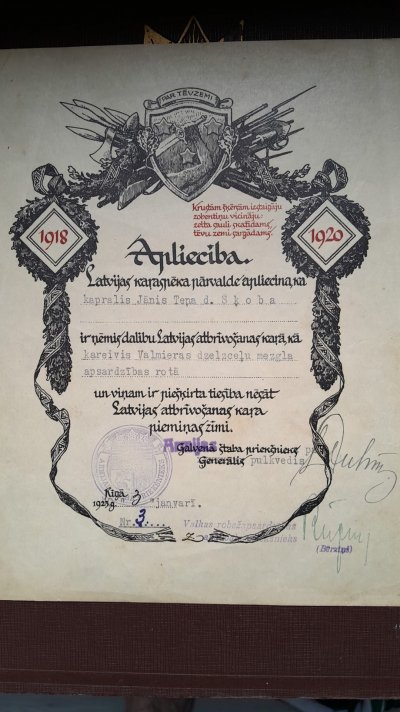 PAR TĒVZEMI
Krustām šķērsām izstaigāju
zobentiņu vicināju:
zelta sauli skatīdams
tēvu zemi sargādams.
1918
1920
Apliecība.
Latvijas karaspēka pārvalde apliecina, ka
kapralis Jānis Tepa d. Skoba
ir ņēmis dalību Latvijas atbrīvošanas karā, kā
kareivis Valmieras dzelzceļu mezgla
apsardzības rotā
un viņam ir piešķirta tiesība nēsāt
Latvijas atbrīvošanas kara
piemiņas zīmi.
Galvenā štaba priekšnieks
Ģenerālis pulkvedis
Rīgā 3
janvarī.
Nr. 3
Valkas
(Bērziņš)